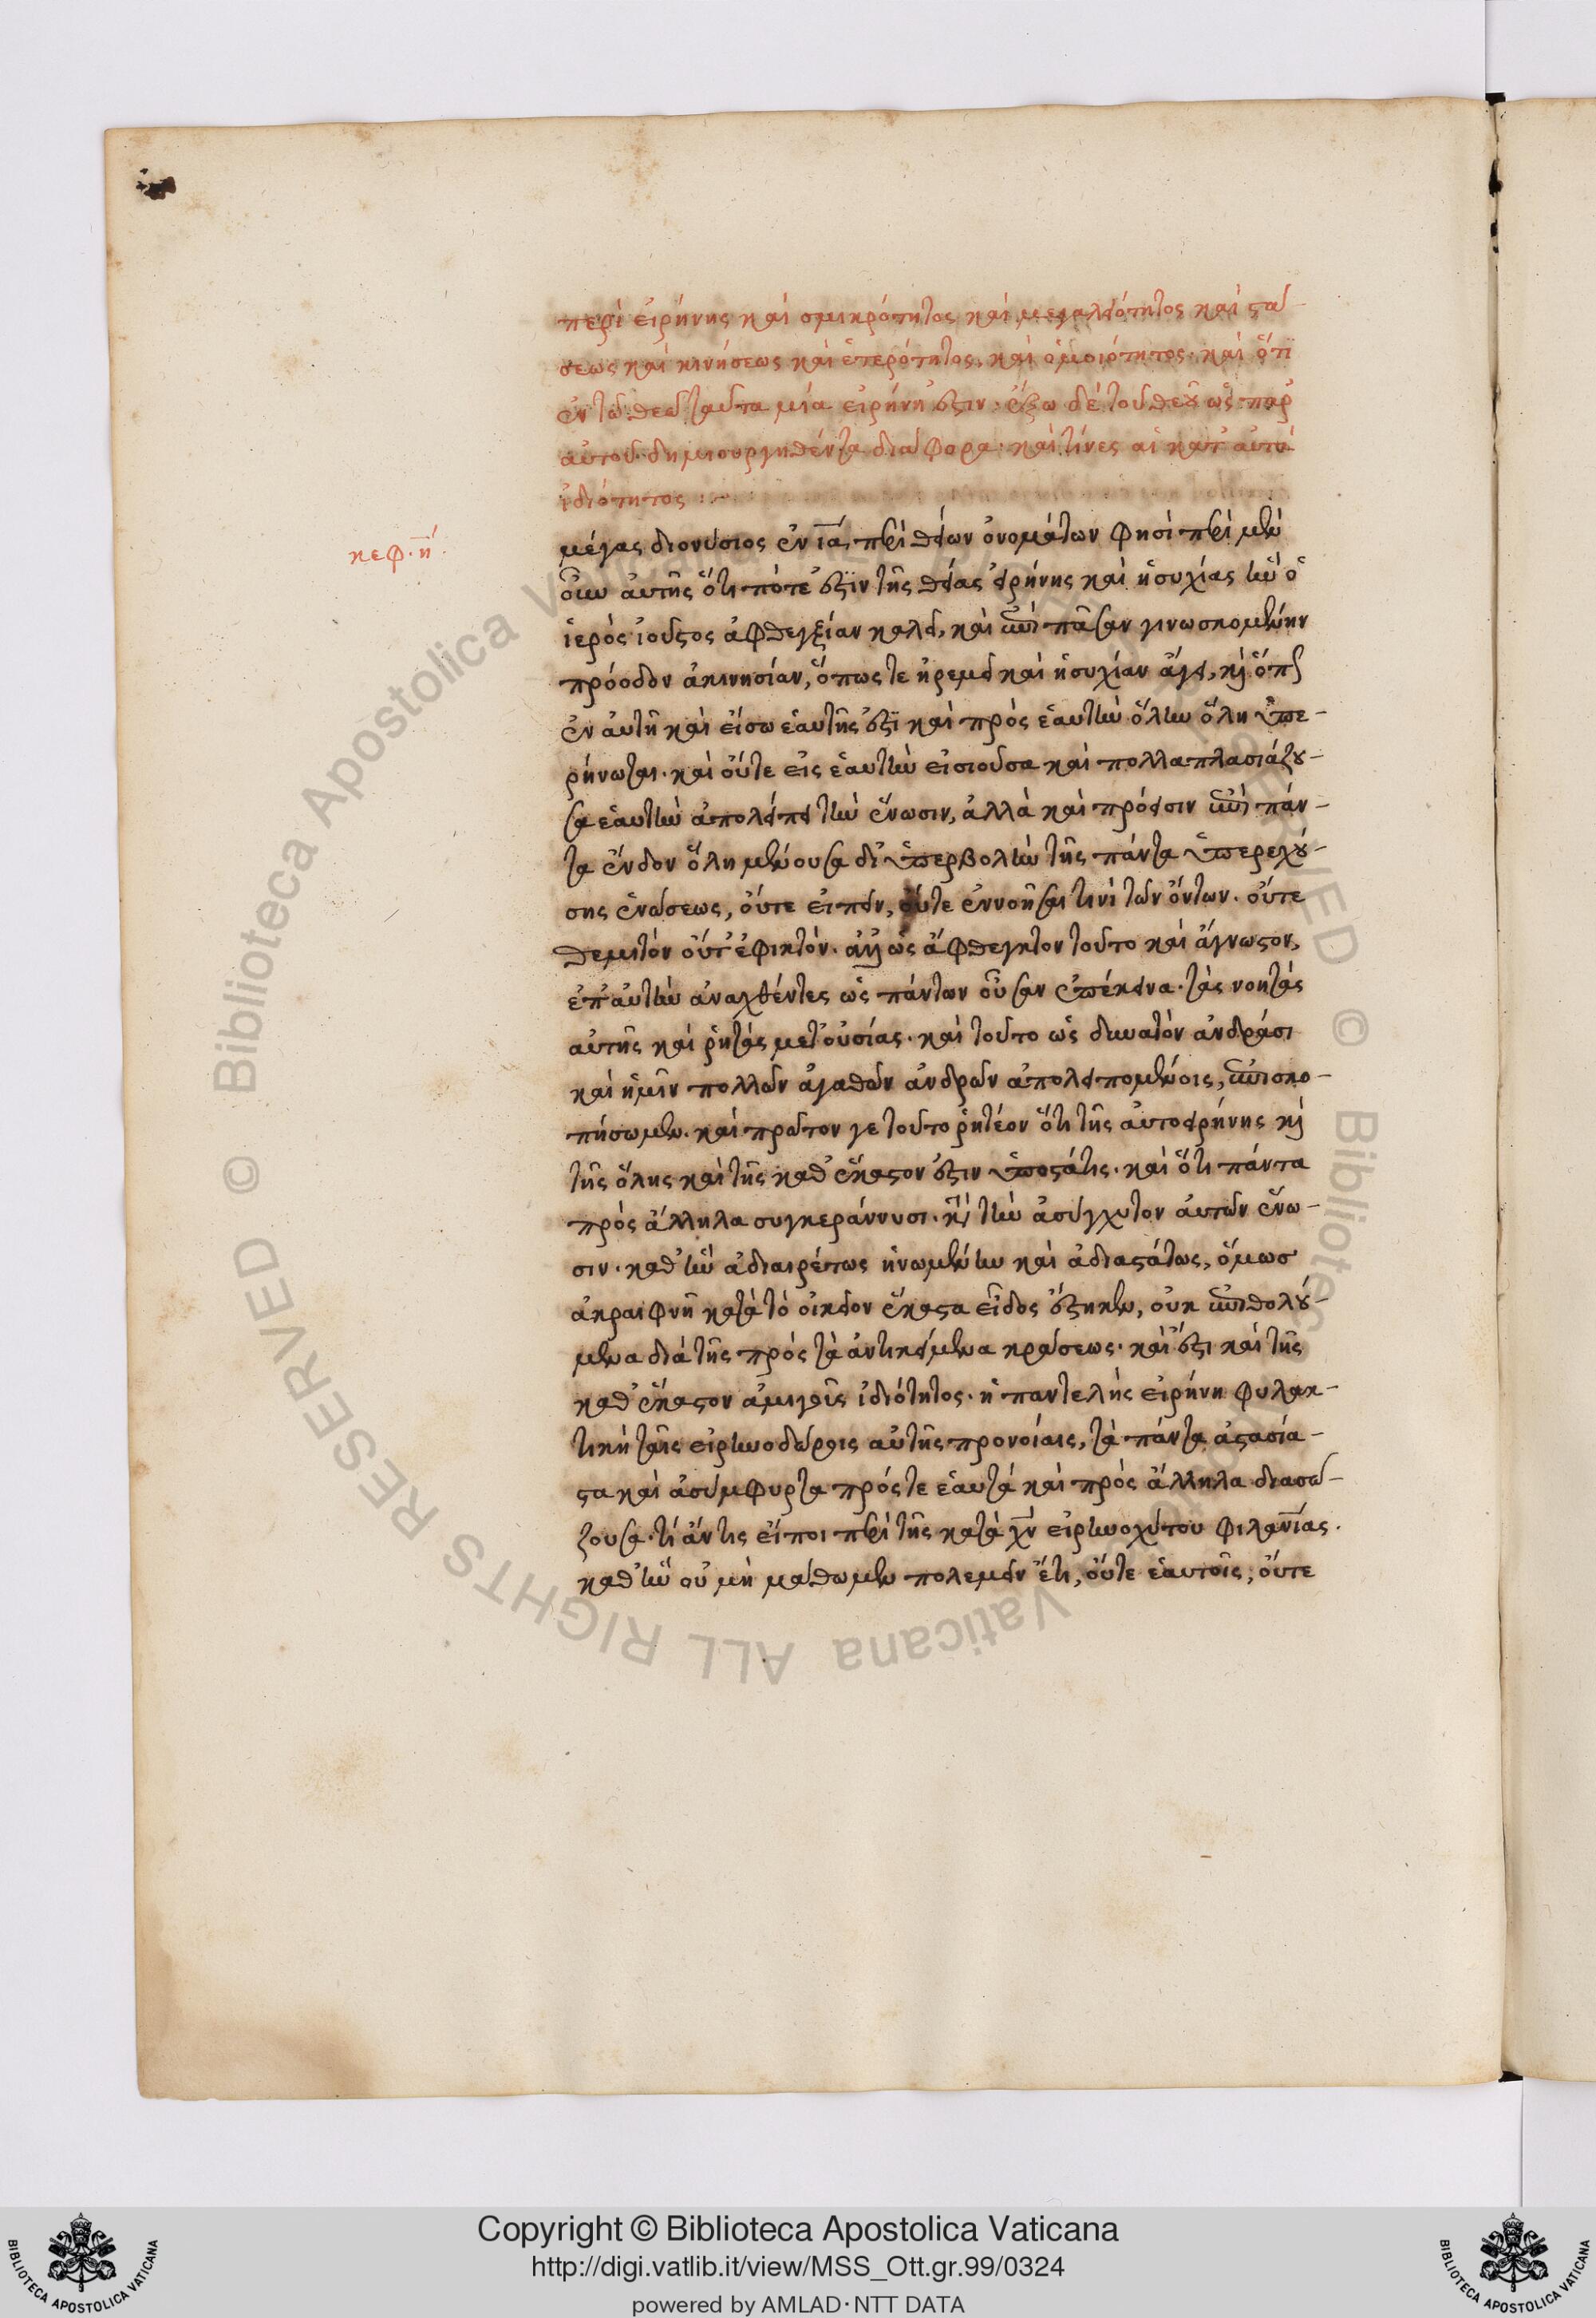 περὶ εἰρήνης καὶ σμικρότητος καὶ μεγαλειότητος καὶ στά-
σεως καὶ κινήσεως καὶ ἑτερότητος, καὶ ὁμοιότητος· καὶ ὅτι
ἐν τῷ θεῷ ταῦτα μία εἰρήνη ἐστιν· ἔξω δὲ τοῦ θεοῦ ὡς παρ'
αὐτοῦ δημιουργηθέντα διάφορα· καὶ τίνες αἱ κατ' αὐτὰ
ἰδιότητος :~
κεφ. η΄.
μέγας διονύσιος ἐν ια΄, περὶ θείων ὀνομάτων φησὶ περὶ μὲν
οὖν αὐτῆς ὅτι πότε ἐστὶν τῆς θείας εἰρήνης καὶ ἡσυχίας ἣν ὁ
ἱερὸς ἰοῦστος ἀφθεγξίαν καλεῖ, καὶ ἐπὶ πᾶσαν γινωσκομένην
πρόοδον ἀκινησίαν, ὅπως τε ἠρεμεῖ καὶ ἡσυχίαν ἄγει, καὶ ὅπως
ἐν αὐτῇ καὶ εἴσω ἑαυτῆς ἐστὶ καὶ πρὸς ἑαυτὴν ὅλην ὅλη ὑπε-
ρήνωται· καὶ οὔτε εἰς ἑαυτὴν εἰσιοῦσα καὶ πολλαπλασιάζου-
σα ἑαυτὴν ἀπολείπει τὴν ἕνωσιν, ἀλλὰ καὶ πρόεισιν ἐπὶ πάν-
τα ἔνδον ὅλη μένουσα δι' ὑπερβολὴν τῆς πάντα ὑπερεχού-
σης ἑνώσεως, οὔτε εἰπεῖν, οὔτε ἐννοῆσαι τινὶ τῶν ὄντων. οὔτε
θεμιτὸν οὔτ' ἐφικτόν. ἀλλ' ὡς ἄφθεγκτον τοῦτο καὶ ἄγνωστον,
ἐπ' αὐτὴν ἀναχθέντες ὡς πάντων οὖσαν ἐπέκεινα. τὰς νοητὰς
αὐτῆς καὶ ῥητὰς μετουσίας. καὶ τοῦτο ὡς δυνατὸν ἀνδράσι
καὶ ἡμῖν πολλῶν ἀγαθῶν ἀνδρῶν ἀπολειπομένοις, ἐπισκο-
πήσωμεν. καὶ πρῶτον γε τοῦτο ῥητέον ὅτι τῆς αὐτοειρήνης καὶ
τῆς ὅλης καὶ τῆς καθ' ἕκαστον ἐστιν ὑποστάτις. καὶ ὅτι πάντα
πρὸς ἄλληλα συγκεράννυσι. κατὰ τὴν ἀσύγχυτον αὐτῶν ἕνω-
σιν. καθ' ἣν ἀδιαιρέτως ἡνωμένην καὶ ἀδιαστάτως, ὅμως
ἀκραιφνῆ κατὰ τὸ οἰκεῖον ἕκαστα εἶδος ἕστηκεν, οὐκ ἐπιθολού-
μενα διὰ τῆς πρὸς τὰ ἀντικείμενα κράσεως. καὶ ἔστι καὶ τῆς
καθ' ἕκαστον ἀμιγοῦς ἰδιότητος. ἡ παντελὴς εἰρήνη φυλακ-
τικὴ ταῖς εἰρηνοδώροις αὐτῆς προνοίαις, τὰ πάντα ἀστασία-
στα καὶ ἀσύμφυρτα πρός τε ἑαυτὰ καὶ πρὸς ἄλληλα διασώ-
ζουσα. τί ἄν τις εἴποι περὶ τῆς κατὰ χν εἰρηνοχύτου φιλανίας.
καθ' ἣν οὐ μὴ μάθωμεν πολεμεῖν ἔτι, οὔτε ἑαυτοῖς, οὔτε
Copyright © Biblioteca Apostolica Vaticana
http://digi.vatlib.it/view/MSS_Ott.gr.99/0324
powered by AMLAD·NTT DATA
BIBLIOTECA APOSTOLICA VATICANA
BIBLIOTECA APOSTOLICA VATICANA
© Biblioteca Apostolica Vaticana ALL RIGHTS RESERVED